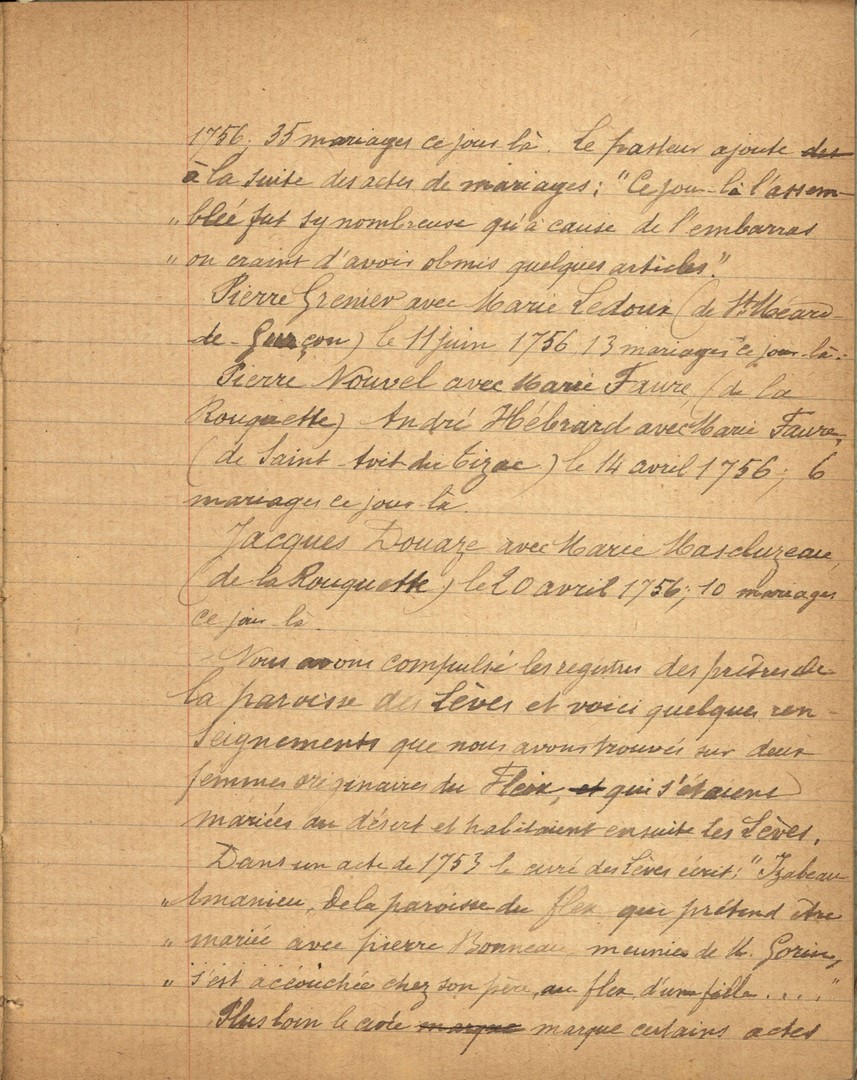 1756; 35 mariages ce jour là. Le pasteur ajoute des
à la suite des actes de mariages: "Ce jour-là l'assem-
" blée fut sy nombreuse qu'à cause de l'embarras
" on craint d'avoir obmis quelques articles."
Pierre Grenier avec Marie Ledoux (de St Méard-
de-Gurçon) le 11 juin 1756 13 mariages ce jour-là.
Pierre Nouvel avec Marie Faure, (de la
Rouquette) André Hébrard avec Marie Faure,
(de Saint Avit du Tizac) le 14 avril 1756; 6
mariages ce jour-là.
Jacques Douaze avec Marie Mascluzeau,
(de la Rouquette) le 20 avril 1756; 10 mariages
ce jour là.
Nous avons compulsé les registres des prêtres de
la paroisse des Lèves et voici quelques ren-
seignements que nous avons trouvés sur deux
femmes originaires du Fleix, et qui s'étaient
mariées au désert et habitaient ensuite les Lèves.
Dans un acte de 1753 le curé des Lèves écrit: "Izabeau
" Amanieu, de la paroisse du flex qui prétend être
" mariée avec pierre Bonneau meunier de M. Gorin,
" s'est accouchée chez son père, au flex, d'une fille...."
Plus loin le curé marque marque certains actes